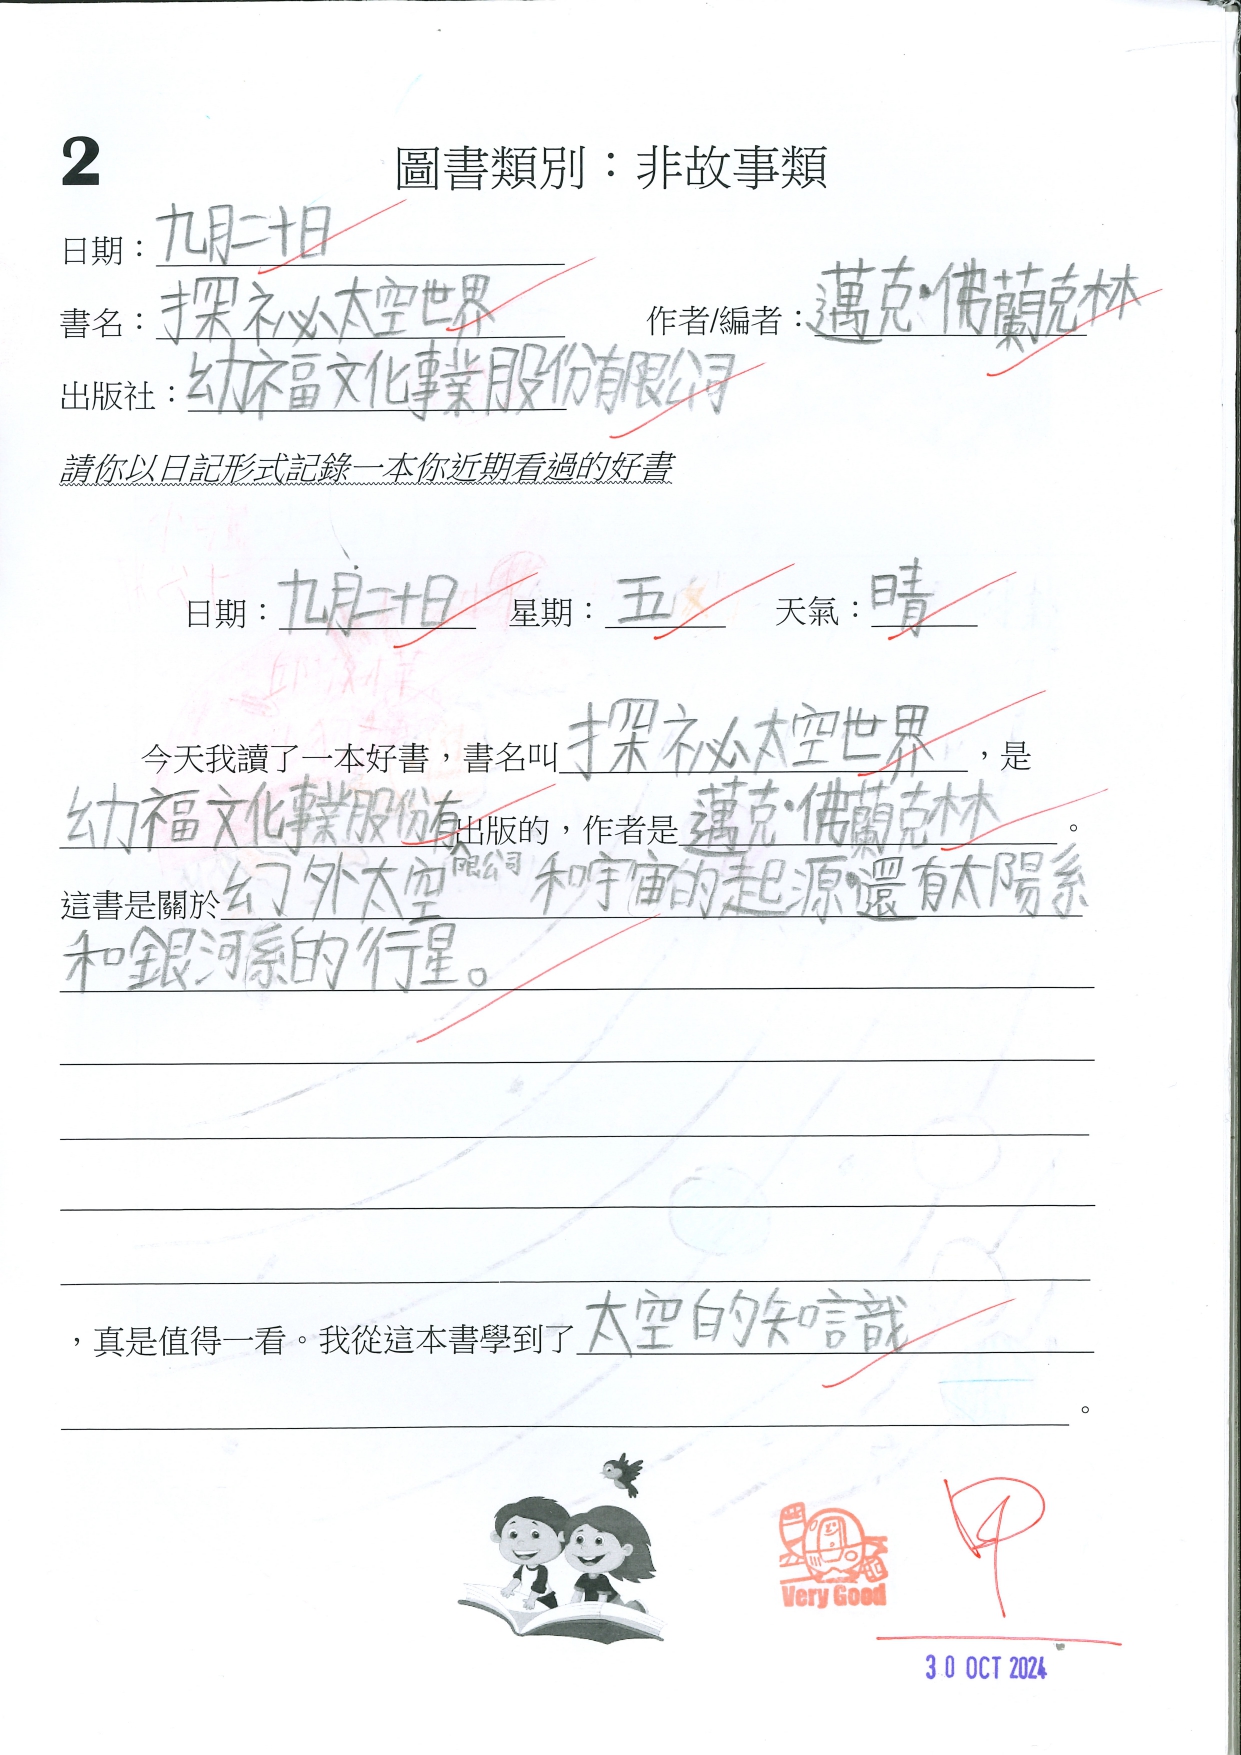 2
圖書類別：非故事類
日期：九月二十日
書名：探祕太空世界 作者/編者：邁克·佛蘭克林
出版社：幼福文化事業股份有限公司
請你以日記形式記錄一本你近期看過的好書
日期：九月二十日 星期：五 天氣：晴
今天我讀了一本好書，書名叫探祕太空世界，是
幼福文化事業股份有限公司出版的，作者是邁克·佛蘭克林。
這書是關於幻外太空和宇宙的起源，還有太陽系
和銀河系的行星。
，真是值得一看。我從這本書學到了太空的知識
。
Very Good
甲
30 OCT 2024